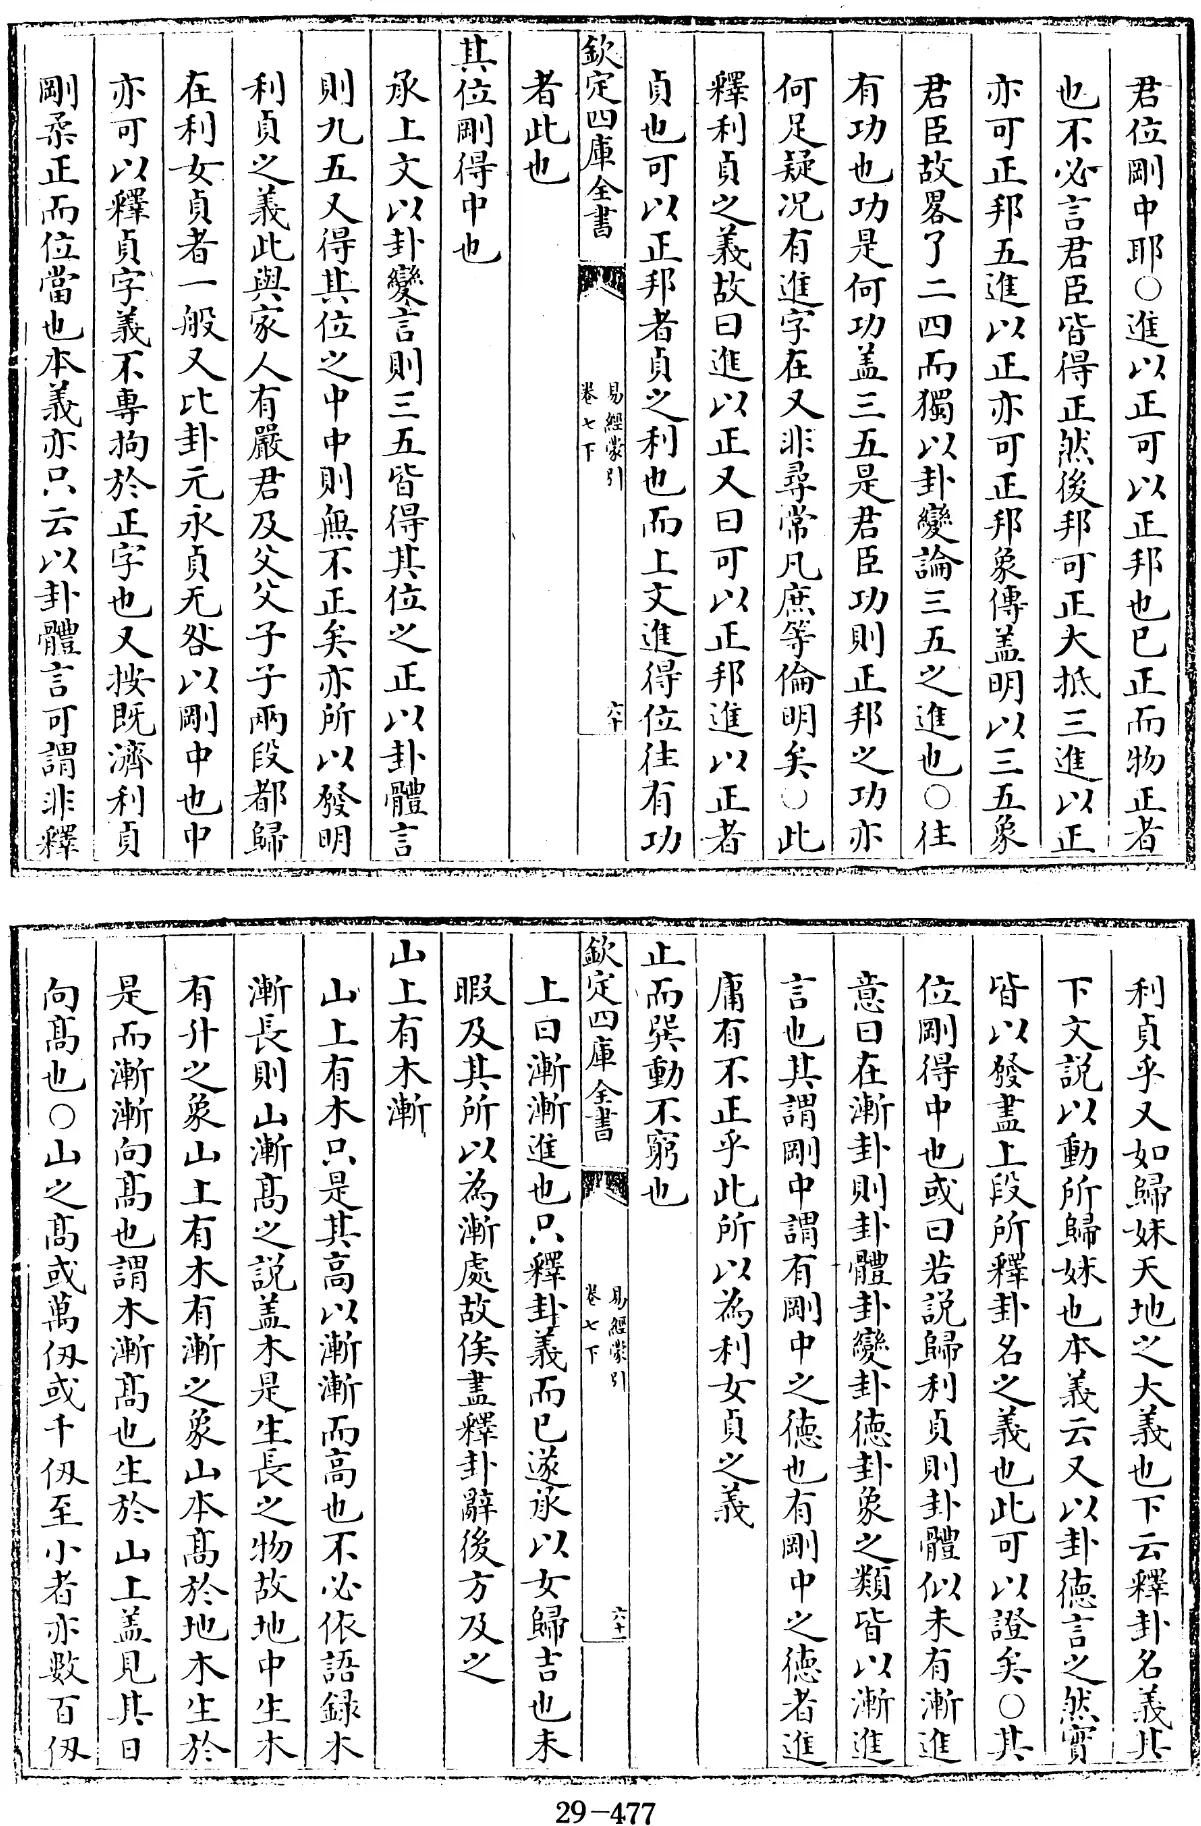 君位剛中耶○進以正可以正邦也已正而物正者
也不必言君臣皆得正然後邦可正大抵三進以正
亦可正邦五進以正亦可正邦彖傳盖明以三五象
君臣故畧了二四而獨以卦變論三五之進也○往
有功也功是何功盖三五是君臣功則正邦之功亦
何足疑況有進字在又非尋常凡庶等倫明矣○此
釋利貞之義故曰進以正又曰可以正邦進以正者
貞也可以正邦者貞之利也而上文進得位往有功
欽定四庫全書
易經蒙引
卷七下
六十
者此也
其位剛得中也
承上文以卦變言則三五皆得其位之正以卦體言
則九五又得其位之中中則無不正矣亦所以發明
利貞之義此與家人有嚴君及父父子子兩段都歸
在利女貞者一般又比卦元永貞无咎以剛中也中
亦可以釋貞字義不專拘於正字也又按既濟利貞
剛柔正而位當也本義亦只云以卦體言可謂非釋
利貞乎又如歸妹天地之大義也下云釋卦名義其
下文説以動所歸妹也本義云又以卦德言之然實
皆以發盡上段所釋卦名之義也此可以證矣○其
位剛得中也或曰若説歸利貞則卦體似未有漸進
意曰在漸卦則卦體卦變卦德卦象之類皆以漸進
言也其謂剛中謂有剛中之德也有剛中之德者進
庸有不正乎此所以為利女貞之義
止而巽動不窮也
欽定四庫全書
易經蒙引
卷七下
六十一
上曰漸漸進也只釋卦義而已遂承以女歸吉也未
暇及其所以為漸處故俟盡釋卦辭後方及之
山上有木漸
山上有木只是其高以漸漸而高也不必依語録木
漸長則山漸髙之説盖木是生長之物故地中生木
有升之象山上有木有漸之象山本髙於地木生於
是而漸漸向髙也謂木漸髙也生於山上盖見其日
向髙也○山之髙或萬仭或千仭至小者亦數百仭
29-477